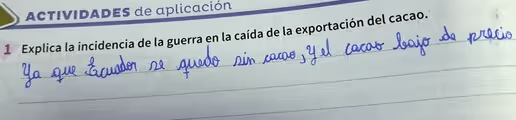 ACTIVIDADES de aplicación
1 Explica la incidencia de la guerra en la caída de la exportación del cacao.
Ya que Ecuador se quedo sin cacao, y el cacao bajo de precio